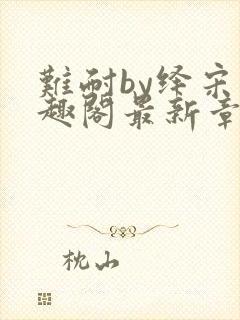 難耐by绎宋
趣閣最新章
枕山